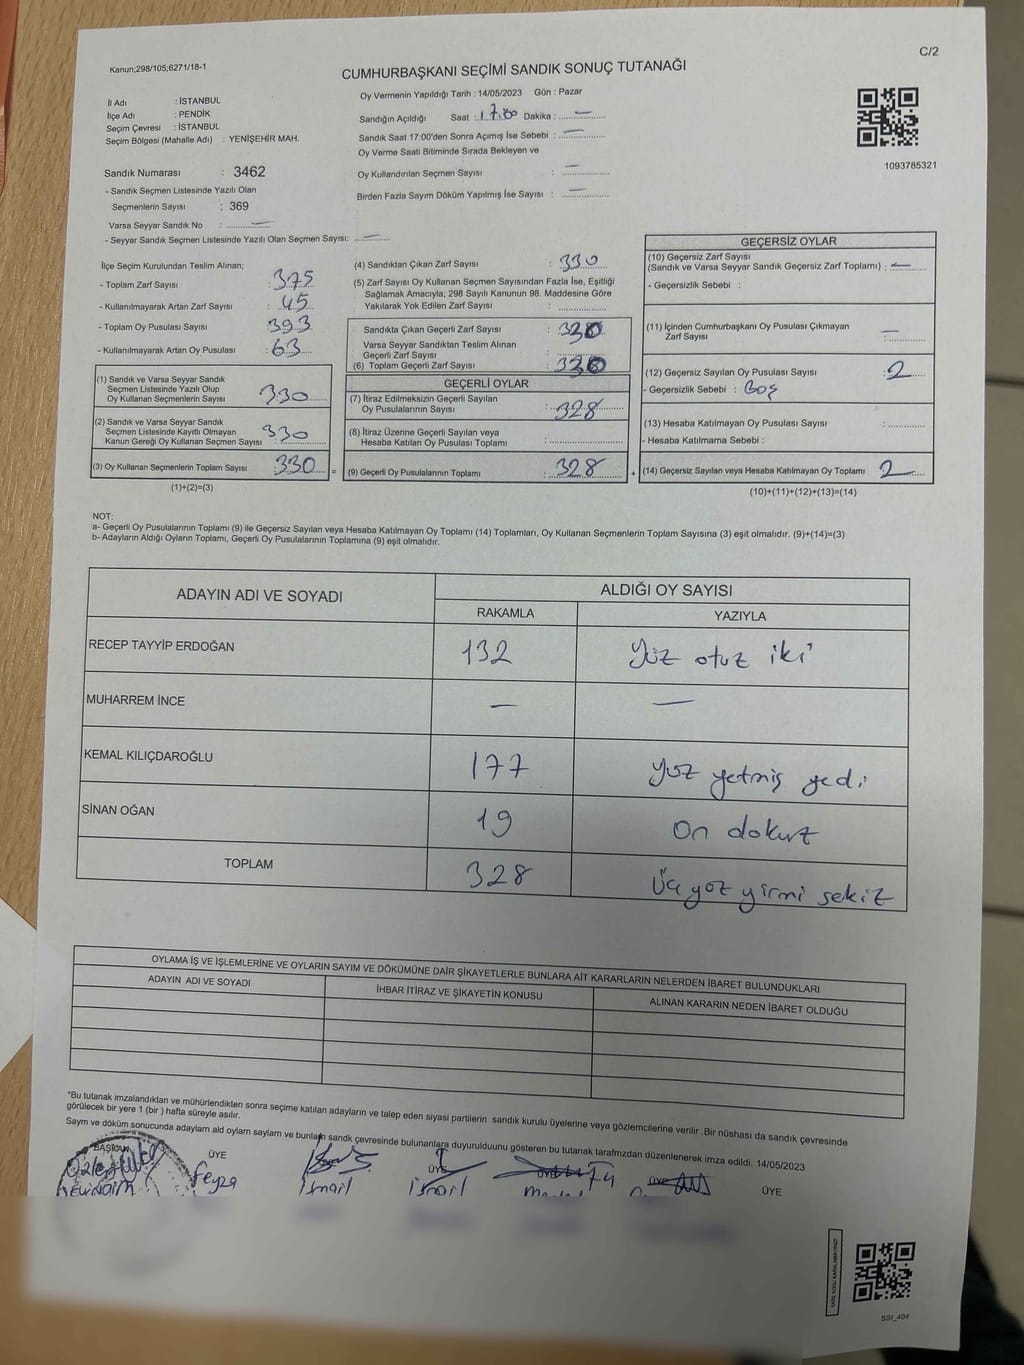 C/2
Kanun;298/105;6271/18-1
CUMHURBAŞKANI SEÇİMİ SANDIK SONUÇ TUTANAĞI
İl Adı : İSTANBUL
İlçe Adı : PENDİK
Seçim Çevresi : İSTANBUL
Seçim Bölgesi (Mahalle Adı) : YENİŞEHİR MAH.
Sandık Numarası : 3462
- Sandık Seçmen Listesinde Yazılı Olan
Seçmenlerin Sayısı : 369
Varsa Seyyar Sandık No : —
- Seyyar Sandık Seçmen Listesinde Yazılı Olan Seçmen Sayısı: —
Oy Vermenin Yapıldığı Tarih : 14/05/2023 Gün : Pazar
Sandığın Açıldığı Saat : 17.00 Dakika : —
Sandık Saat 17:00'den Sonra Açımış İse Sebebi : —
Oy Verme Saati Bitiminde Sırada Bekleyen ve
Oy Kullandırılan Seçmen Sayısı : —
Birden Fazla Sayım Döküm Yapılmış İse Sayısı : —
1093785321
İlçe Seçim Kurulundan Teslim Alınan;
- Toplam Zarf Sayısı : 375
- Kullanılmayarak Artan Zarf Sayısı : 45
- Toplam Oy Pusulası Sayısı : 393
- Kullanılmayarak Artan Oy Pusulası : 63
(1) Sandık ve Varsa Seyyar Sandık
Seçmen Listesinde Yazılı Olup
Oy Kullanan Seçmenlerin Sayısı : 330
(2) Sandık ve Varsa Seyyar Sandık
Seçmen Listesinde Kayıtlı Olmayan
Kanun Gereği Oy Kullanan Seçmen Sayısı : 330
(3) Oy Kullanan Seçmenlerin Toplam Sayısı : 330 =
(1)+(2)=(3)
(4) Sandıktan Çıkan Zarf Sayısı : 330
(5) Zarf Sayısı Oy Kullanan Seçmen Sayısından Fazla İse, Eşitliği
Sağlamak Amacıyla; 298 Sayılı Kanunun 98. Maddesine Göre
Yakılarak Yok Edilen Zarf Sayısı :
Sandıkta Çıkan Geçerli Zarf Sayısı : 330
Varsa Seyyar Sandıktan Teslim Alınan
Geçerli Zarf Sayısı :
(6) Toplam Geçerli Zarf Sayısı : 330
GEÇERLİ OYLAR
(7) İtiraz Edilmeksizin Geçerli Sayılan
Oy Pusulalarının Sayısı : 328
(8) İtiraz Üzerine Geçerli Sayılan veya
Hesaba Katılan Oy Pusulası Toplamı :
(9) Geçerli Oy Pusulalarının Toplamı : 328 +
GEÇERSİZ OYLAR
(10) Geçersiz Zarf Sayısı
(Sandık ve Varsa Seyyar Sandık Geçersiz Zarf Toplamı) : —
- Geçersizlik Sebebi :
(11) İçinden Cumhurbaşkanı Oy Pusulası Çıkmayan
Zarf Sayısı : —
(12) Geçersiz Sayılan Oy Pusulası Sayısı : 2
- Geçersizlik Sebebi : Boş
(13) Hesaba Katılmayan Oy Pusulası Sayısı :
- Hesaba Katılmama Sebebi :
(14) Geçersiz Sayılan veya Hesaba Katılmayan Oy Toplamı : 2
(10)+(11)+(12)+(13)=(14)
NOT:
a- Geçerli Oy Pusulalarının Toplamı (9) ile Geçersiz Sayılan veya Hesaba Katılmayan Oy Toplamı (14) Toplamları, Oy Kullanan Seçmenlerin Toplam Sayısına (3) eşit olmalıdır. (9)+(14)=(3)
b- Adayların Aldığı Oyların Toplamı, Geçerli Oy Pusulalarının Toplamına (9) eşit olmalıdır.
ADAYIN ADI VE SOYADI
ALDIĞI OY SAYISI
RAKAMLA YAZIYLA
RECEP TAYYİP ERDOĞAN 132 Yüz otuz iki
MUHARREM İNCE — —
KEMAL KILIÇDAROĞLU 177 Yüz yetmiş yedi
SİNAN OĞAN 19 On dokuz
TOPLAM 328 Üç yüz yirmi sekiz
OYLAMA İŞ VE İŞLEMLERİNE VE OYLARIN SAYIM VE DÖKÜMÜNE DAİR ŞİKAYETLERLE BUNLARA AİT KARARLARIN NELERDEN İBARET BULUNDUKLARI
ADAYIN ADI VE SOYADI İHBAR İTİRAZ VE ŞİKAYETİN KONUSU ALINAN KARARIN NEDEN İBARET OLDUĞU
*Bu tutanak imzalandıktan ve mühürlendikten sonra seçime katılan adayların ve talep eden siyasi partilerin sandık kurulu üyelerine veya gözlemcilerine verilir .Bir nüshası da sandık çevresinde
görülecek bir yere 1 (bir ) hafta süreyle asılır.
Sayım ve döküm sonucunda adayların ald oyların sayları ve bunların sandk çevresinde bulunanlara duyurulduunu gösteren bu tutanak tarafmzdan düzenlenerek imza edildi. 14/05/2023
BAŞKAN ÜYE ÜYE ÜYE ÜYE ÜYE
Feyza İsmail İsmail
SSI_404